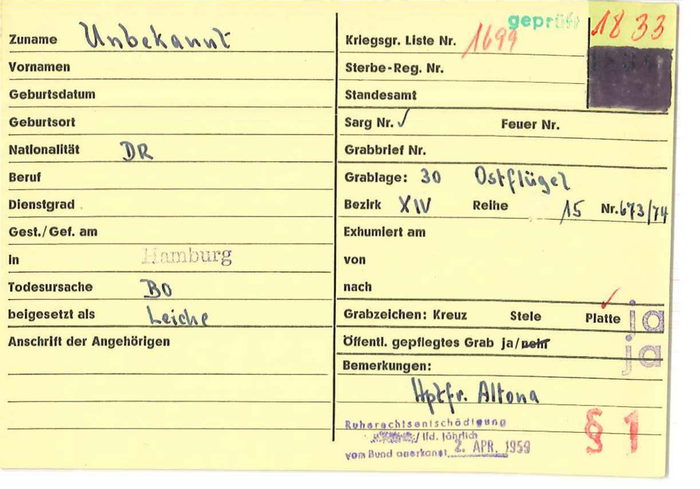 geprüft 1833
Zuname Unbekannt
Vornamen
Geburtsdatum
Geburtsort
Nationalität DR
Beruf
Dienstgrad
Gest./Gef. am
in Hamburg
Todesursache BO
beigesetzt als Leiche
Anschrift der Angehörigen
Kriegsgr. Liste Nr. 1699
Sterbe-Reg. Nr.
Standesamt
Sarg Nr. ✓ Feuer Nr.
Grabbrief Nr.
Grablage: 30 Ostflügel
Bezirk XIV Reihe 15 Nr. 673/74
Exhumiert am
von
nach
Grabzeichen: Kreuz Stele Platte ja
Öffentl. gepflegtes Grab ja/nein ja
Bemerkungen:
Hptfr. Altona
Ruherechtsentschädigung
/ lfd. jährlich
vom Bund anerkannt 2. APR. 1959
§ 1